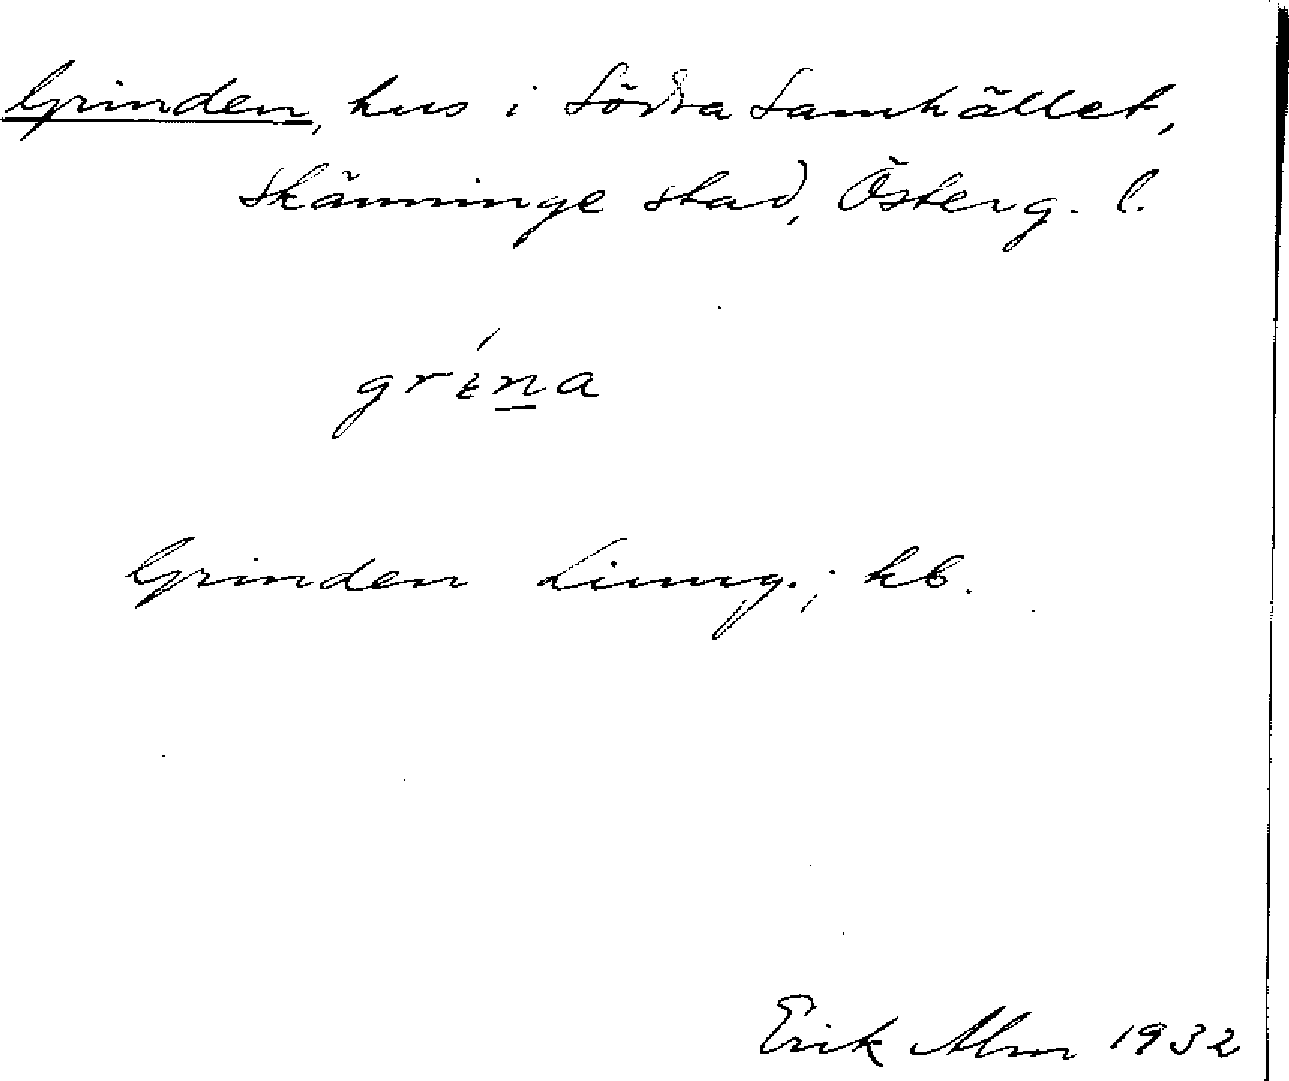 Grinden, hus i Södra Samhället,
Skänninge stad, Österg. l.
grɩ́n̲a
Grinden Liung.; kb.
Erik Alm 1932